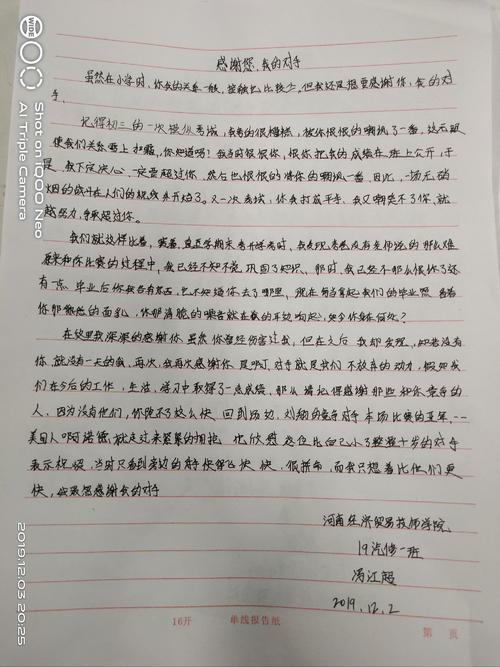 感谢您,我的对手
虽然在小学时,你我的关系一般,接触也比较少,但我还是想要感谢你,我的对
手.
记得初三的一次模拟考试,我考的很糟糕,被你狠狠的嘲讽了一番,这无疑
使我们关系雪上加霜,你知道吗?我当时很恨你,恨你把我的成绩在班上公开,于
是,我下定决心,一定要超过你,然后也狠狠的将你嘲讽一番,因此,一场无硝
烟的战斗在人们的视线来开始了,又一次考试,你我打成平手,我又嘲笑不了你,就
越努力,争取超过你。
我们就这样比着,赛着,直至学期末考升学考时,我发现考卷没有老师说的那么难
原来和你比赛的过程中,我已经不知不觉巩固了知识,那时,我已经不那么恨你了还
有一点 毕业后你我各奔东西,也不知道你去了哪里,现在每当拿起我们的毕业照 看着
你那熟悉的面孔,你那清脆的嗓音就在我的耳边响起,如今你身在何处?
在这里我深深的感谢你,虽然你曾经伤害过我,但在之后,我却发现,如若没有
你,就没有今天的我,再次,我再次感谢你 是啊,对手就是我们不放弃的动力,假如我
们在今后的工作,生活,学习中取得了一点成绩,那么请记得感谢那些和你竞争的
人,因为没有他们,你跑不了这么快,回到场边,刘翔的竞争对手 本场比赛的亚军,--
美国人 阿诺德,就走过来紧紧的拥抱 他欣然 这位比自己小了整整十岁的对手
表示祝候,当时只看到旁边的选手快得飞快快,很拼命,而我只想着比他们更
快,
河南经济贸易技师学院
19汽修一班
冯江超
2019.12.2
16开 单线报告纸 第 页
WIDE
Shot on iQOO Neo
AI Triple Camera
2019.12.03 20:25